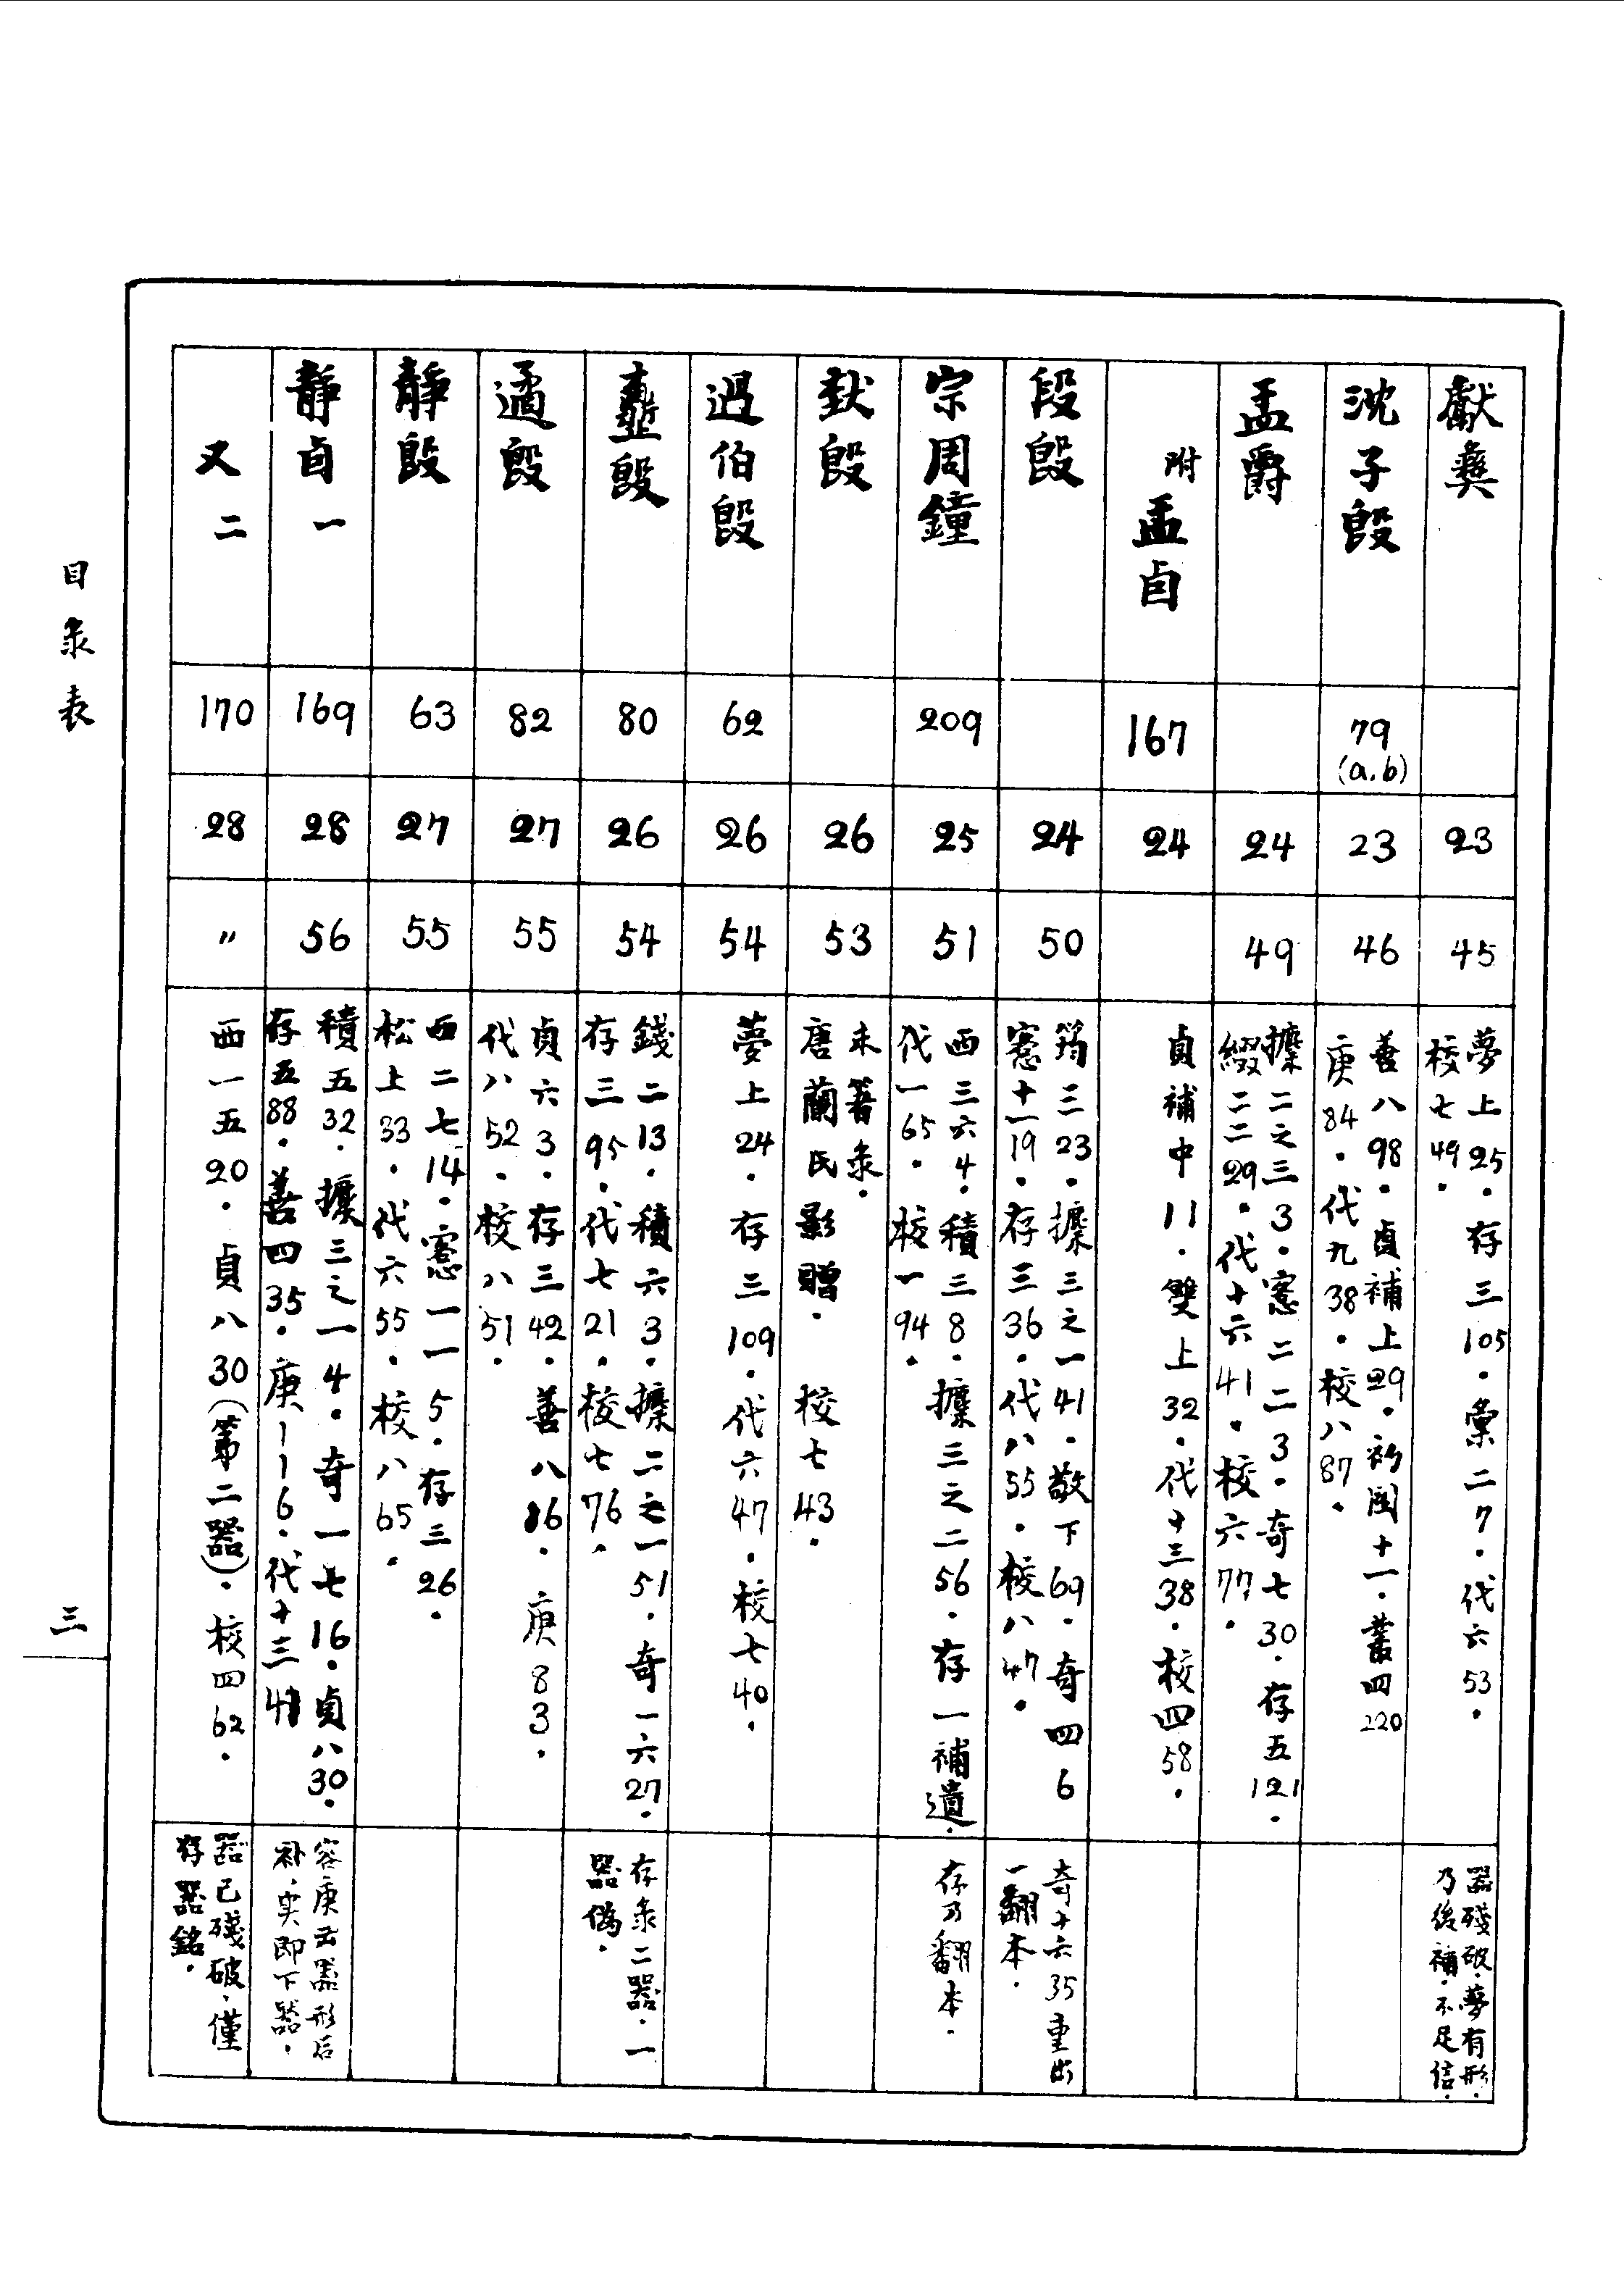 獻彝
23
45
夢上25．存三105．彙二7．代六53．
校七49．
器殘破．夢有形．
乃後補．不足信．
沈子𣪘
79
(a.b)
23
46
善八98．貞補上29．初聞十一．叢四220
庚84．代九38．校八87．
盂爵
24
49
攈二之三3．愙二二3．奇七30．存五121．
綴二二29．代十六41．校六77．
附
盂卣
167
24
貞補中11．雙上32．代十三38．校四58．
段𣪘
24
50
筠三23．攈三之一41．敬下69．奇四6
愙十一19．存三36．代八55．校八47．
奇十六35重出
一翻本．
宗周鐘
209
25
51
西三六4．積三8．攈三之二56．存一補遺．
代一65．校一94．
存乃翻本．
㝬𣪘
26
53
未箸彔．
唐蘭氏影贈．校七43．
過伯𣪘
62
26
54
夢上24．存三109．代六47．校七40．
𣪘
80
26
54
錢二13．積六3．攈二之一51．奇一六27．
存三95．代七21．校七76．
存彔二器．一
器偽．
遹𣪘
82
27
55
貞六3．存三42．善八86．庚83．
代八52．校八51．
靜𣪘
63
27
55
西二七14．愙一一5．存三26．
松上33．代六55．校八65．
靜卣一
169
28
56
積五32．攈三之一4．奇一七16．貞八30．
存五88．善四35．庚116．代十三41
容庚云器形后
补．实即下器．
又二
170
28
〃
西一五20．貞八30(第二器)．校四62．
器已殘破．僅
存器銘．
目彔表
三